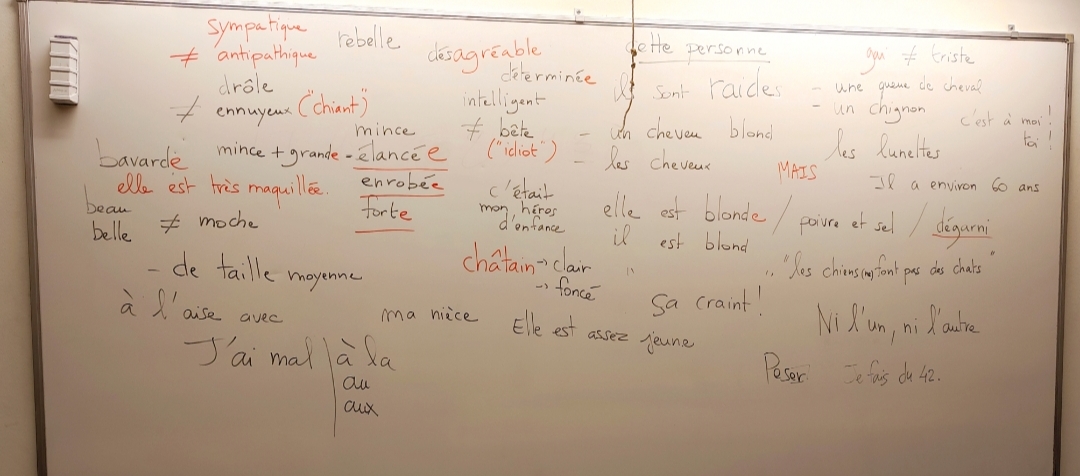 sympatique
≠ antipathique
drôle
≠ ennuyeux ("chiant")
rebelle
désagréable
déterminée
intelligent
≠ bête
("idiot")
mince
mince + grande - élancée
enrobée
forte
bavarde
elle est très maquillée.
beau
belle ≠ moche
c'était
mon héros
d'enfance
- de taille moyenne
à l'aise avec
ma nièce
châtain → clair
→ foncé
Elle est assez jeune
J'ai mal | à la
au
aux
cette personne
ils sont raides
- un cheveu blond
- les cheveux
MAIS
elle est blonde / poivre et sel / dégarni
il est blond
gai ≠ triste
- une queue de cheval
- un chignon
c'est à moi !
toi !
les lunettes
Il a environ 60 ans
"les chiens (ne) font pas des chats"
ça craint !
Ni l'un, ni l'autre
Peser Je fais du 42.